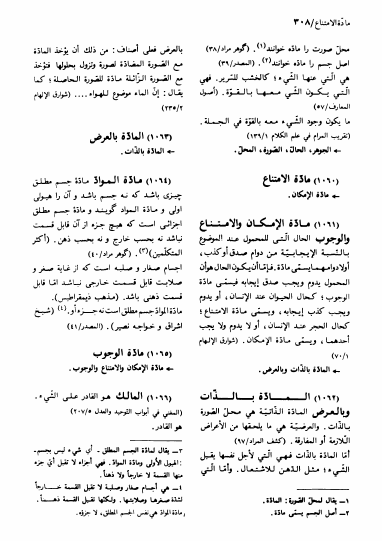 مادّة الامتناع / ٣٠٨
محلّ صورت را مادّه خوانند(١). (گوهر مراد/٣٨)
اصل جسم را مادّه خوانند(٢). (المصدر/٣٩)
هي الّتي عنها الشّيء؛ كالخشب للسّرير. فهي
هي الّتي يكون الشّيء معها بالقوّة. (أصول
المعارف/٥٧)
ما يكون وجود الشّيء معه بالقوّة في الجملة.
(تقريب المرام في علم الكلام ١٣٩/١)
← الجوهر، الحالّ، الصّورة، المحلّ.
(١٠٦٠) مادّة الامتناع
← مادّة الإمكان.
(١٠٦١) مادّة الإمكان والامتناع
والوجوب الحال الّتي للمحمول عند الموضوع
بالنّسبة الإيجابيّة من دوام صدق أو كذب،
أو لا دوامهما يسمّى مادّة. فإمّا أن يكون الحال هو أن
المحمول يدوم ويجب صدق إيجابه فيسمّى مادّة
الوجوب؛ كحال الحيوان عند الإنسان، أو يدوم
ويجب كذب إيجابه، ويسمّى مادّة الامتناع؛
كحال الحجر عند الإنسان، أو لا يدوم ولا يجب
أحدهما، ويسمّى مادّة الإمكان. (شوارق الإلهام
٧٠/١)
← المادّة بالذّات وبالعرض.
(١٠٦٢) المادّة بالذّات
وبالعرض المادّة الذّاتيّة هي محلّ الصّورة
بالذّات. والعرضيّة هي ما يلحقها من الأعراض
اللّازمة أو المفارقة. (كشف المراد/٩٧)
أمّا المادّة بالذّات فهي الّتي لأجل نفسها يقبل
الشّيء؛ مثل الدّهن للاشتعال. وأمّا الّتي
١- يقال لمحلّ الصّورة: المادّة.
٢- أصل الجسم يسمّى مادّة.
بالعرض فعلى أصناف: من ذلك أن يؤخذ المادّة
مع الصّورة المضادّة لصورة وتزول بحلولها فتؤخذ
مع الصّورة الزّائلة مادّة للصّورة الحاصلة؛ كما
يقال: إنّ الماء موضوع للهواء.... (شوارق الإلهام
٢٣٥/٢)
(١٠٦٣) المادّة بالعرض
← المادّة بالذّات.
(١٠٦٤) مادّة الموادّ مادّة جسم مطلق
چیزی باشد که نه جسم باشد و آن را هیولی
اولی و مادّة الموادّ گویند و مادّة جسم مطلق
اجزائی است که هیچ جزء از آن قابل قسمت
نباشد نه بحسب خارج و نه بحسب ذهن. (أکثر
المتکلّمین)(٣). (گوهر مراد/٤٠)
اجسام صغار و صلبه است که از غایة صغر و
صلابت قابل قسمت خارجی نباشد امّا قابل
قسمت ذهنی باشد. (مذهب ذیمقراطیس).
مادّة الموادّ جسم مطلق است نه جزء او.(٤) (شیخ
اشراق و خواجه نصیر). (المصدر/٤١)
(١٠٦٥) مادّة الوجوب
← مادّة الإمكان والامتناع والوجوب.
(١٠٦٦) المالك هو القادر على الشّيء.
(المغني في أبواب التّوحيد والعدل ٢٠٧/٥)
هو القادر.
٣- يقال لمادّة الجسم المطلق - أي شيء ليس بجسم-
: الهيولى الأولى ومادّة الموادّ. فهي أجزاء لا تقبل أيّ جزء
منها القسمة لا خارجاً ولا ذهناً.
٤- هي أجسام صغار وصلبة لا تقبل القسمة خارجاً
لشدّة صغرها وصلابتها. ولكنّها تقبل القسمة ذهنـاً.
ومادّة الموادّ هي نفس الجسم المطلق، لا جزؤه.